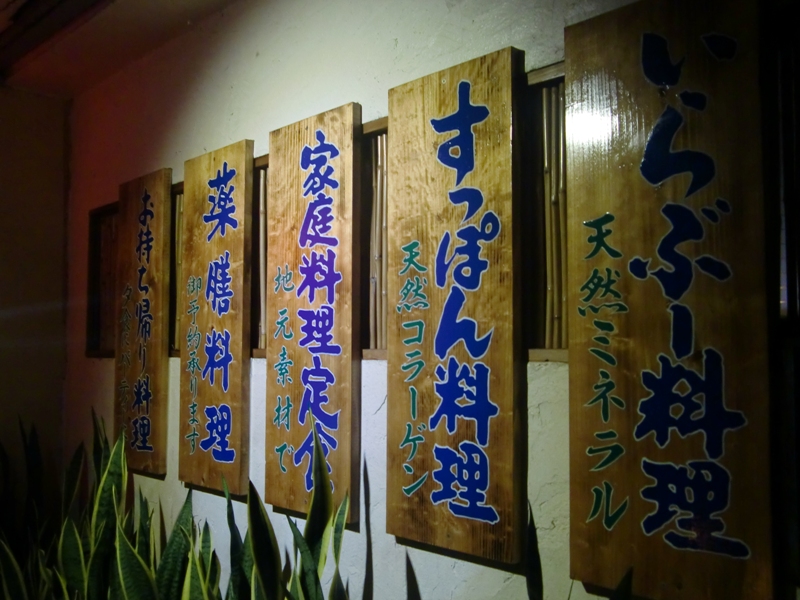 いらぶー料理
天然ミネラル
すっぽん料理
天然コラーゲン
家庭料理定食
地元素材で
薬膳料理
御予約承ります
お持ち帰り料理